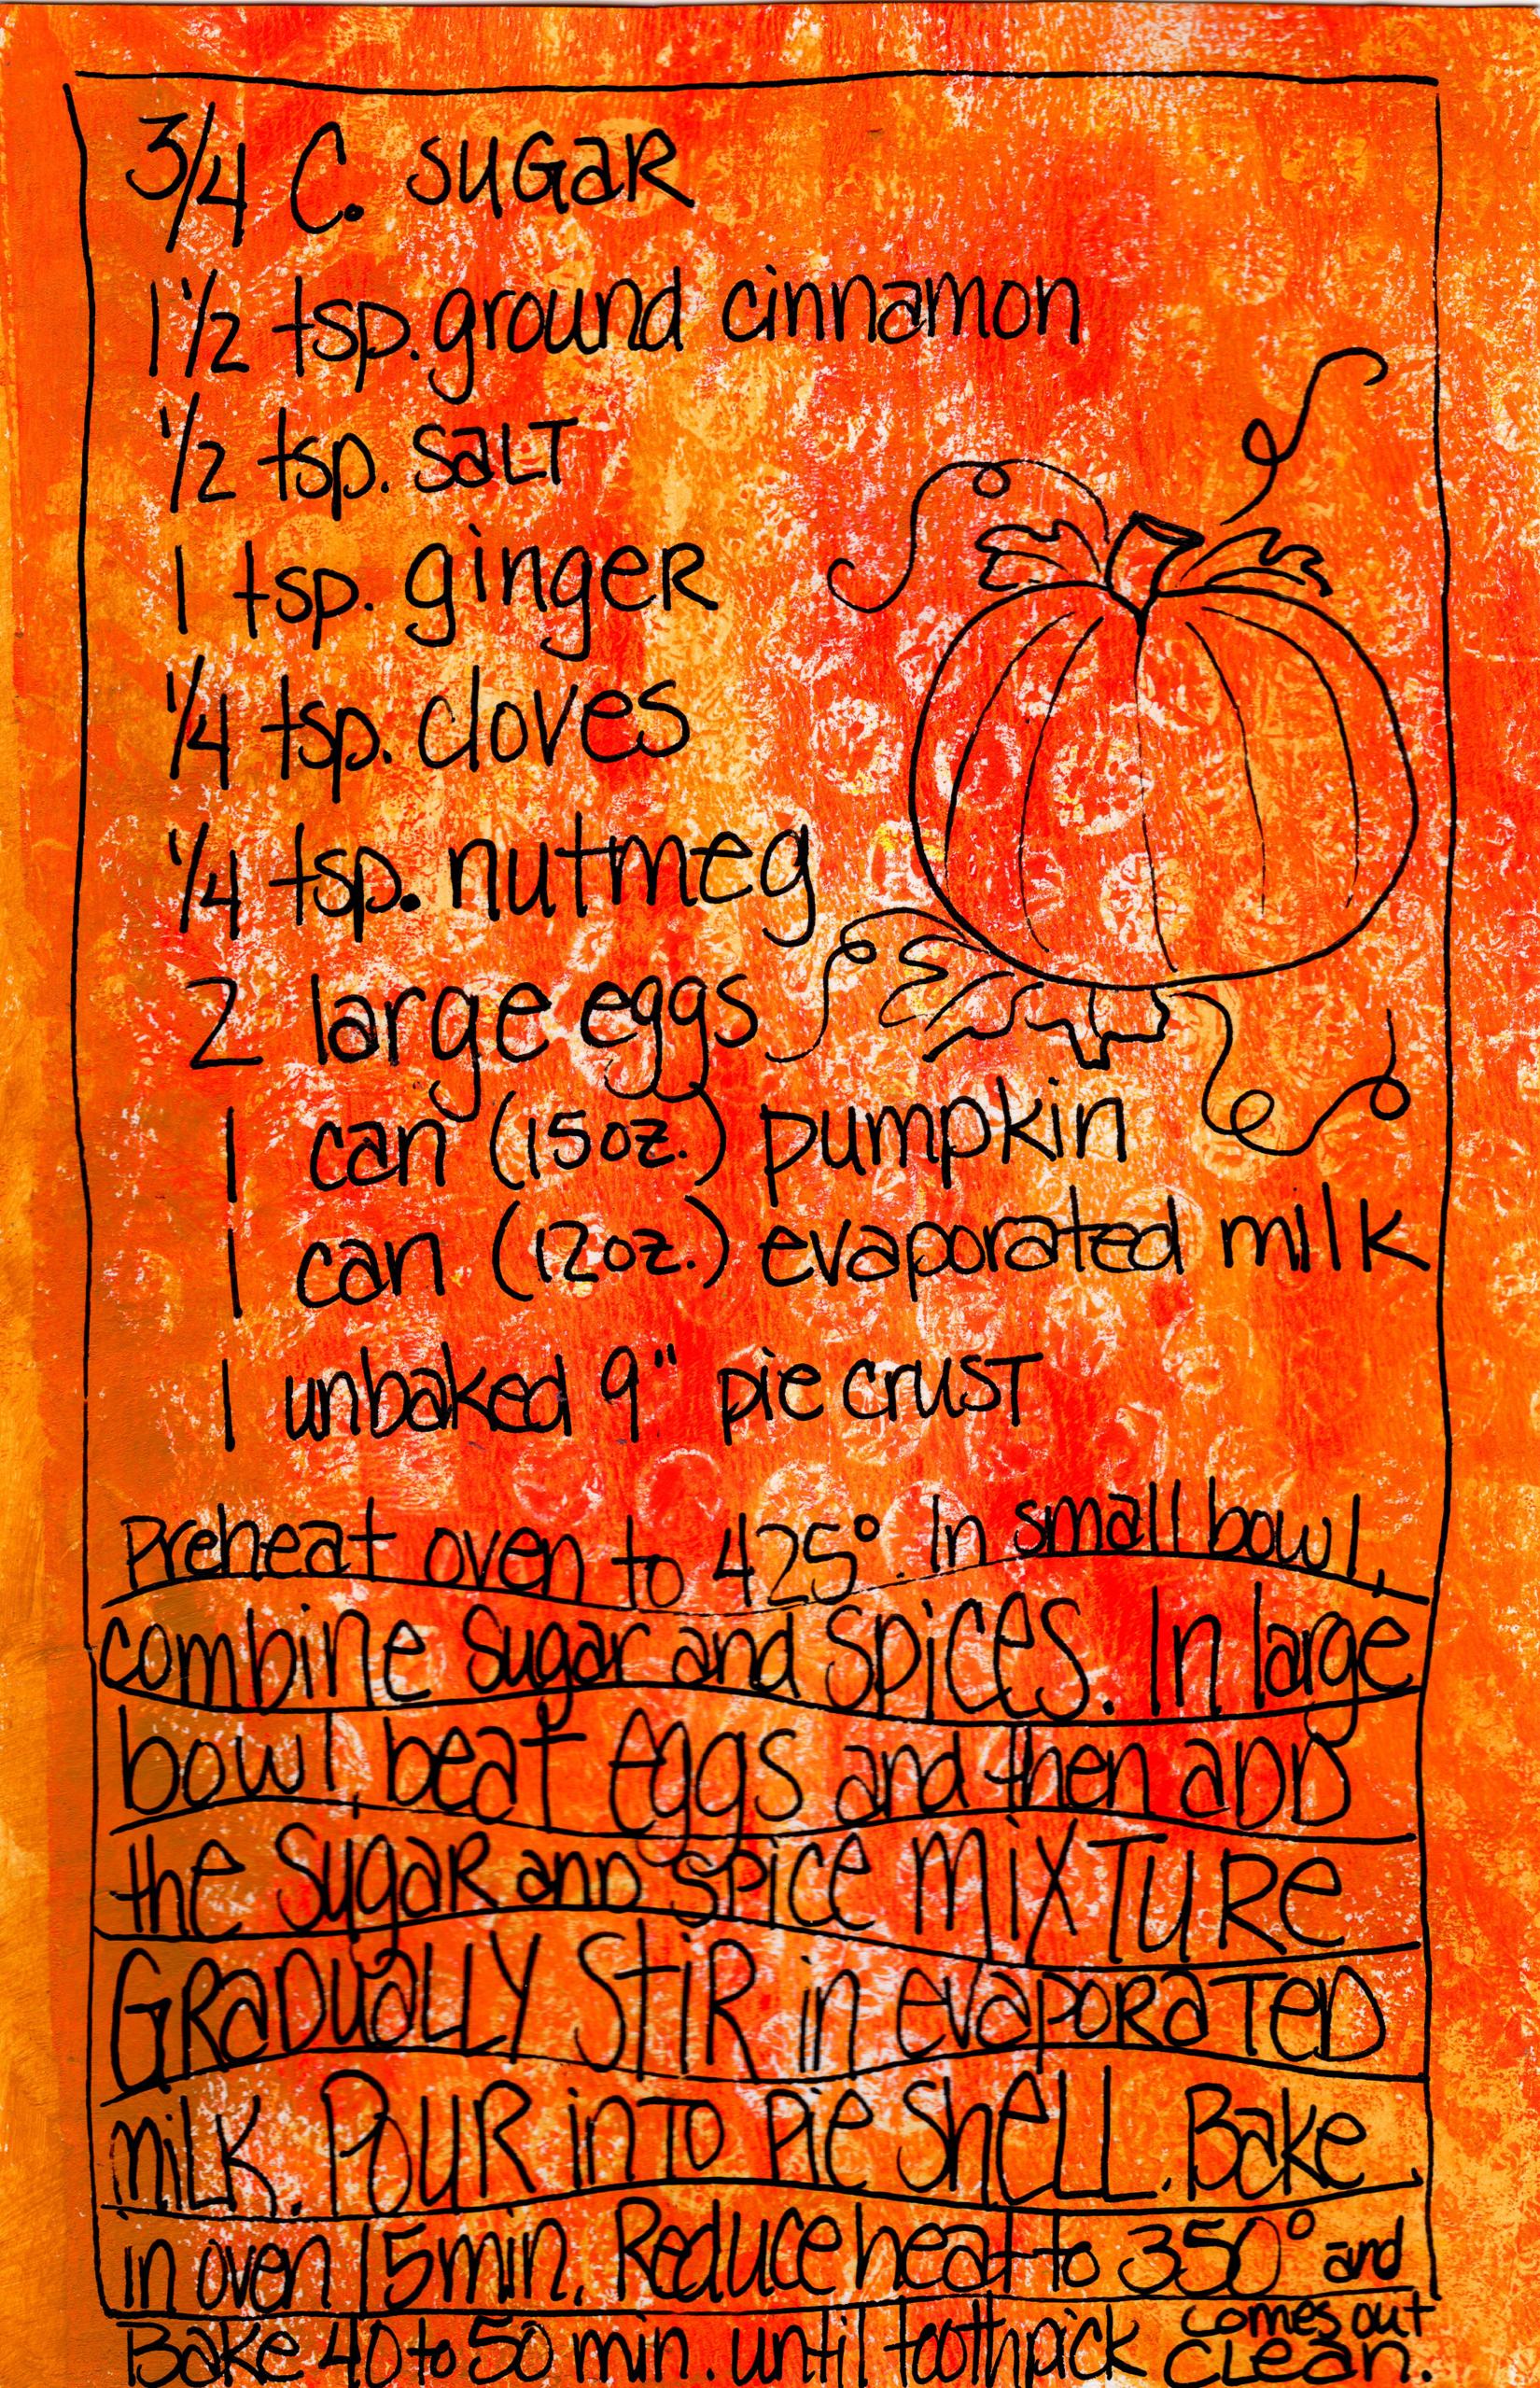 3/4 C. SUGAR
1 1/2 tsp. ground cinnamon
1/2 tsp. SALT
1 tsp. ginger
1/4 tsp. cloves
1/4 tsp. nutmeg
2 large eggs
1 can (15oz.) pumpkin
1 can (12oz.) evaporated milk
1 unbaked 9" pie crust
Preheat oven to 425°. In small bowl,
combine sugar and spices. In large
bowl, beat eggs and then ADD
the SUGAR AND SPICE MIXTURE
GRADUALLY STIR in evaporated
milk. POUR INTO Pie SHELL. Bake
in oven 15 min. Reduce heat to 350° and
Bake 40 to 50 min. until toothpick comes out
clean.